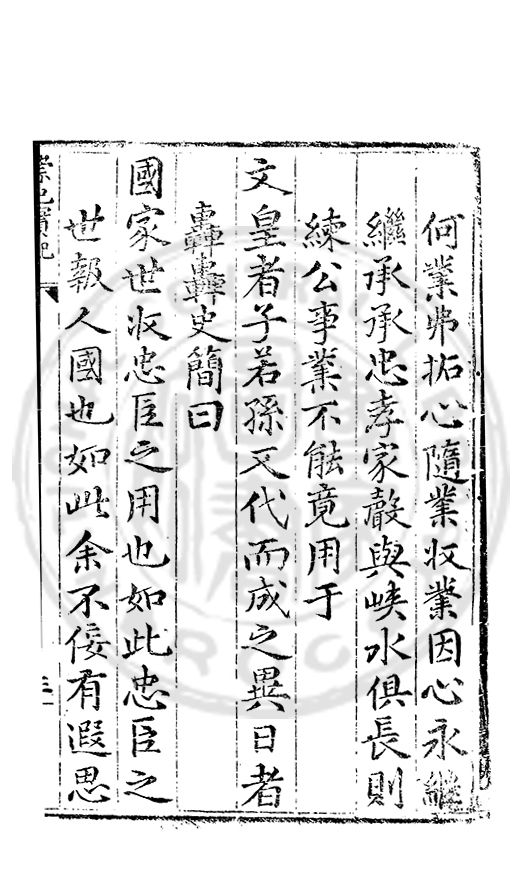 何業弗拓心隨業收業因心永繼
繼承承忠孝家聲與峽水俱長則
練公事業不能竟用于
文皇者子若孫又代而成之異日者
轟轟史簡曰
國家世收忠臣之用也如此忠臣之
世報人國也如此余不佞有遐思